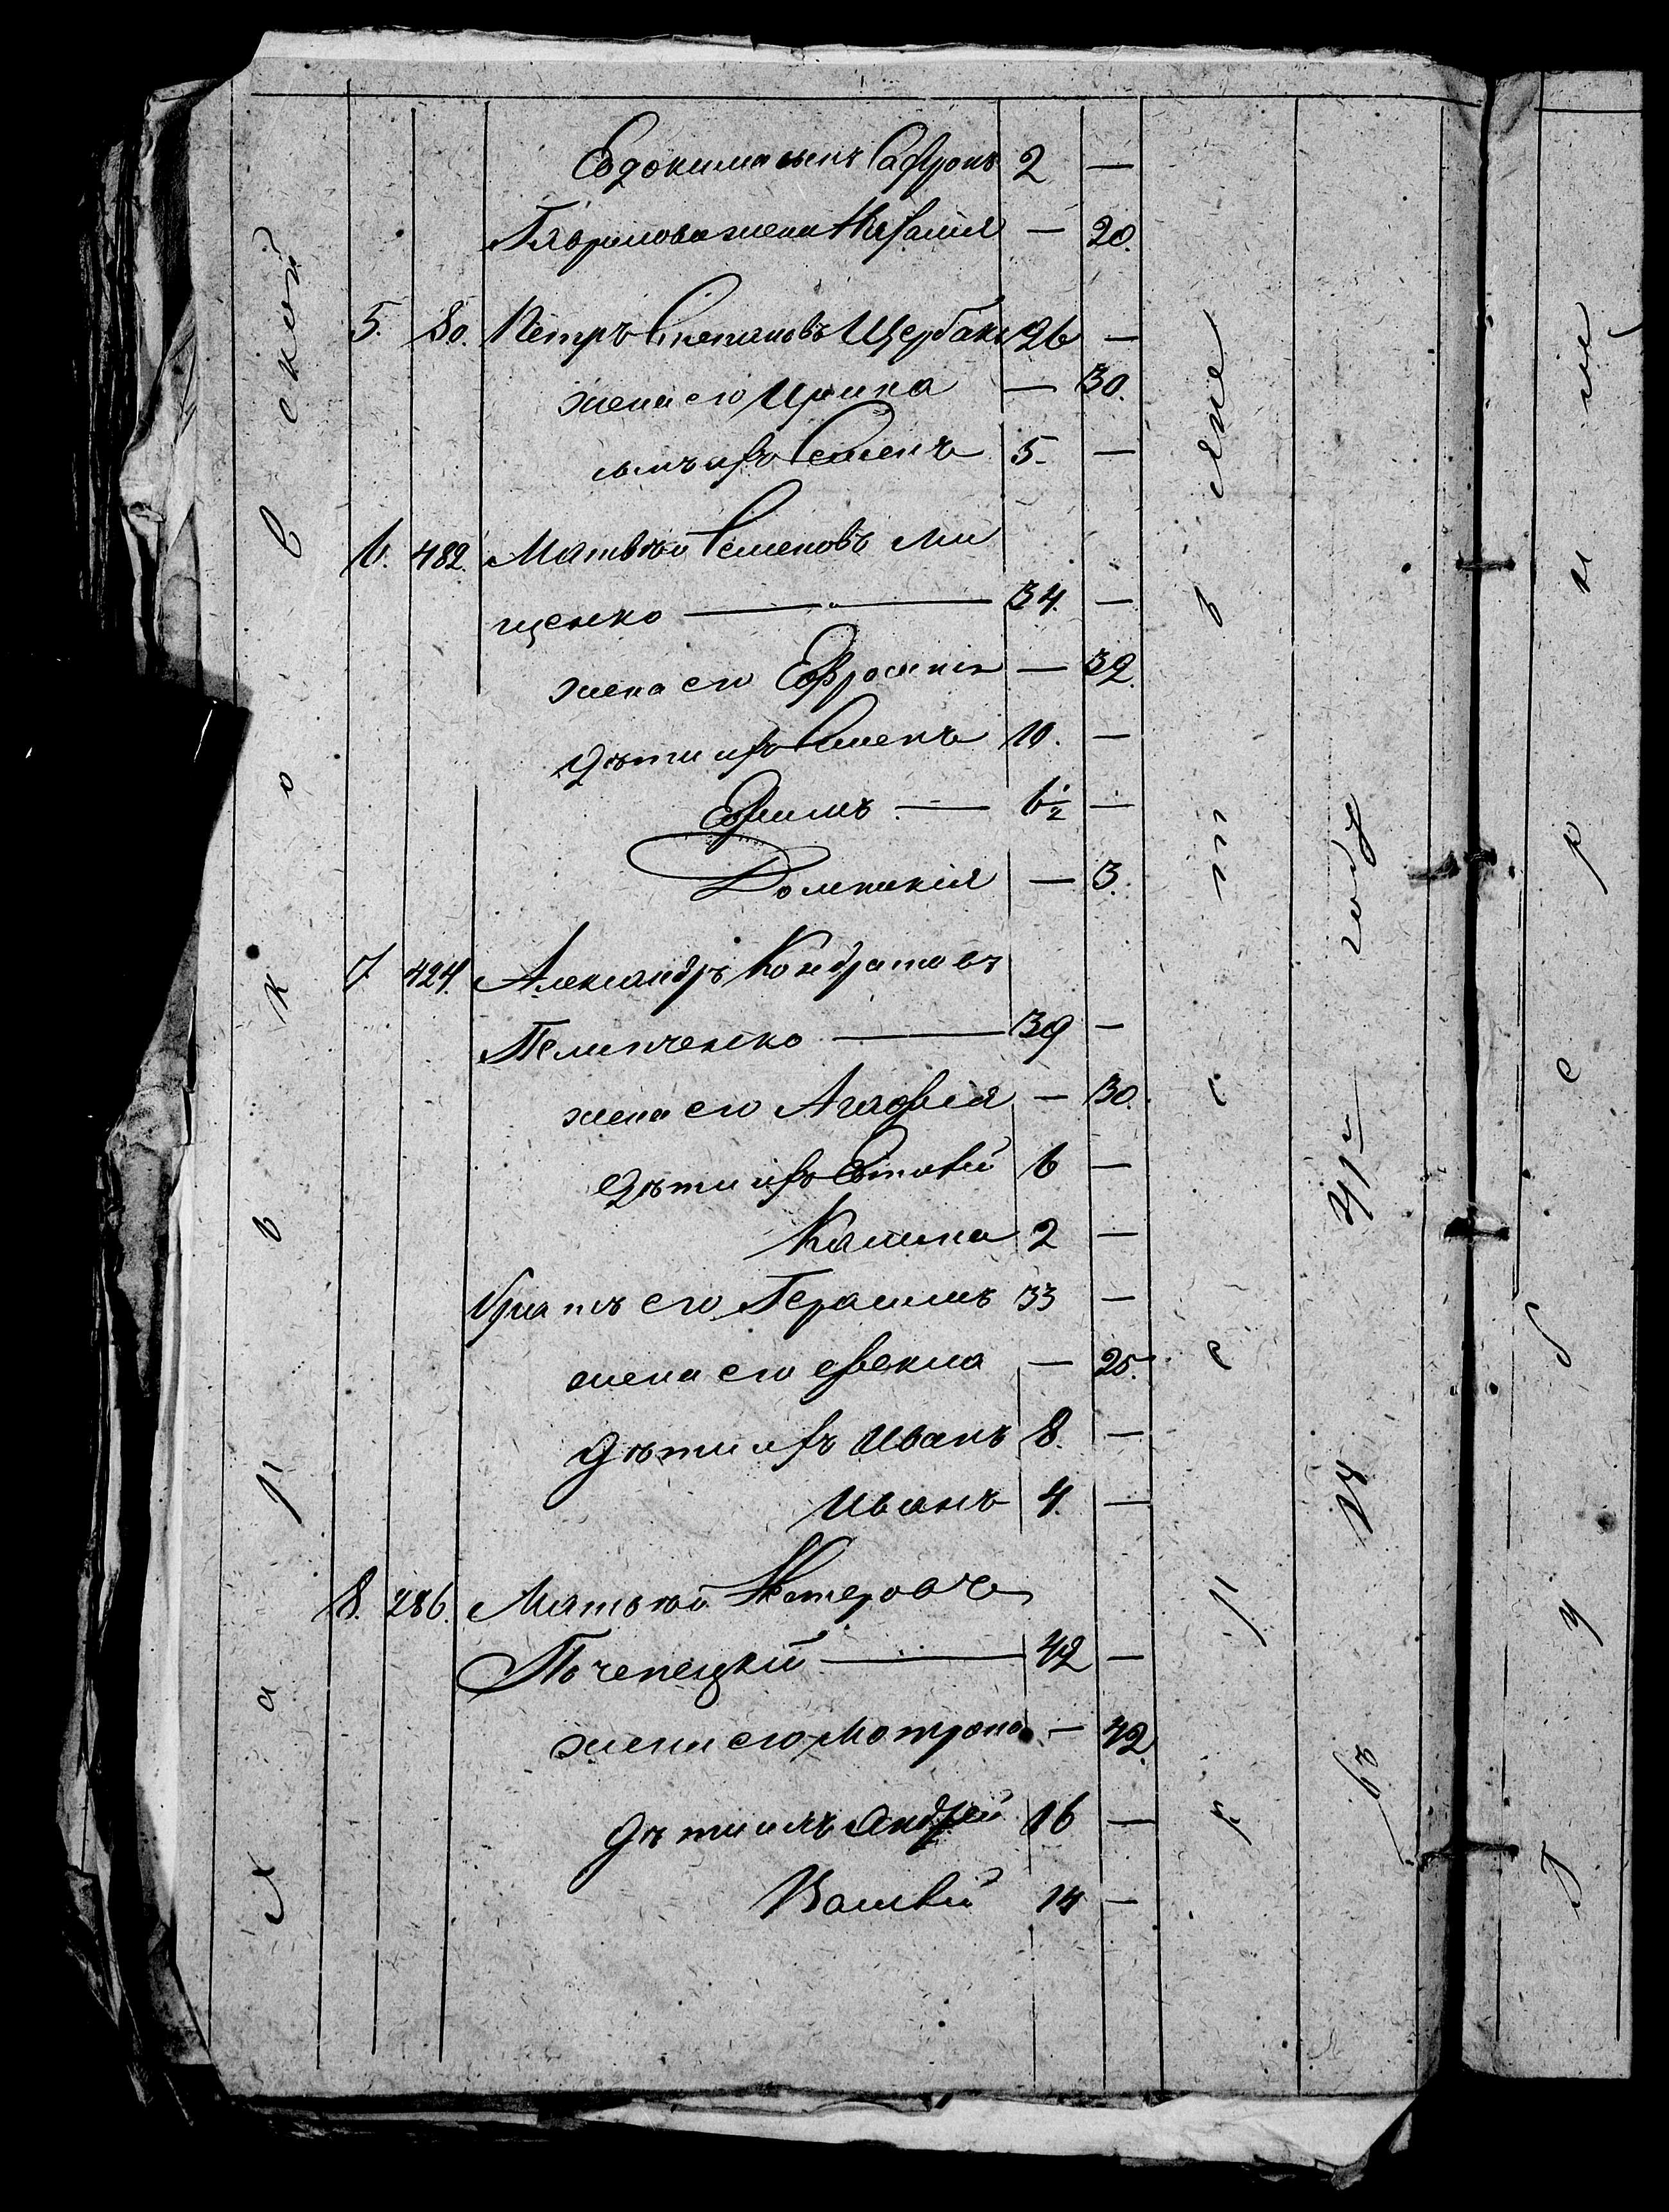 Евдокима сынъ Сафронъ 2 —
Гаврилова жена Наталия — 20.
5. 80. Петръ Степановъ Щербакъ 26 —
жена его Ирина — 30.
сынъ ихъ Семенъ 5. —
6. 482. Матвѣй Семеновъ Ми
щенко — 34. —
жена его Ефросинія — 32.
дѣти ихъ Семенъ 10. —
Ефимъ — 6½ —
Домникія — 3.
7 424. Александръ Кондратовъ
Пелипченко — 39 —
жена его Агафія — 30.
дѣти ихъ 6 —
Калина 2 —
братъ его Герасимъ 33 —
жена его Фекла — 25.
дѣти ихъ Иванъ 8. —
Иванъ 4. —
8. 286. Матвѣй Нестеровъ
Почепецкій — 42 —
жена его Мотрона — 42.
дѣти ихъ Андрей 16 —
14 —
Харьковской
Крестьяне
въ 24 41 году
Губерніи